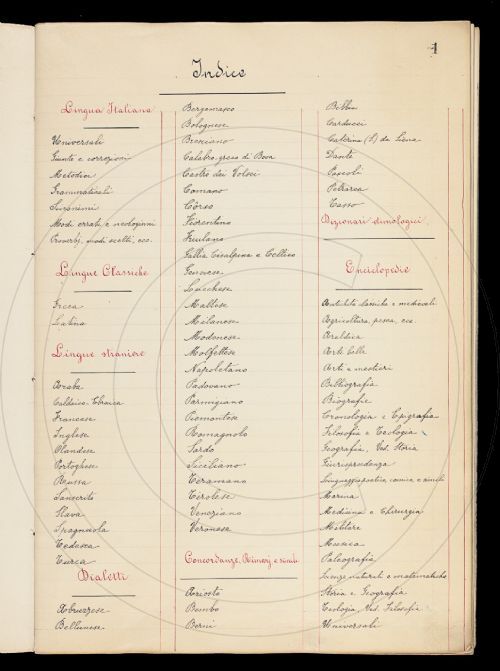 1
Indice
Lingua Italiana
Universali
Giunte e correzioni
Metodici
Grammaticali
Sinonimi
Modi errati e neologismi
Proverbi, modi scelti, ecc.
Lingue Classiche
Greca
Latina
Lingue straniere
Araba
Caldaico-Ebraica
Francese
Inglese
Olandese
Portoghese
Russa
Sanscrito
Slava
Spagnuola
Tedesca
Turca
Dialetti
Abruzzese
Bellunese
Bergamasco
Bolognese
Bresciano
Calabro-greco di Bova
Castro dei Volsci
Comasco
Còrso
Fiorentino
Friulano
Gallia Cisalpina e Celtico
Genovese
Lucchese
Maltese
Milanese
Modenese
Molfettese
Napoletano
Padovano
Parmigiano
Piemontese
Romagnolo
Sardo
Siciliano
Teramano
Tirolese
Veneziano
Veronese
Concordanze, Rimarj e simili
Ariosto
Bembo
Berni
Bibbia
Carducci
Caterina (S.) da Siena
Dante
Pascoli
Petrarca
Tasso
Dizionari etimologici
Enciclopedie
Antichità classiche e medievali
Agricoltura, pesca, ecc.
Araldica
Arti belle
Arti e mestieri
Bibliografia
Biografie
Cronologia e Epigrafia
Filosofia e Teologia
Geografia, Ved. Storia
Giurisprudenza
Marina
Medicina e Chirurgia
Militare
Musica
Paleografia
Scienze naturali e matematiche
Storia e Geografia
Teologia, Ved. Filosofia
Universali